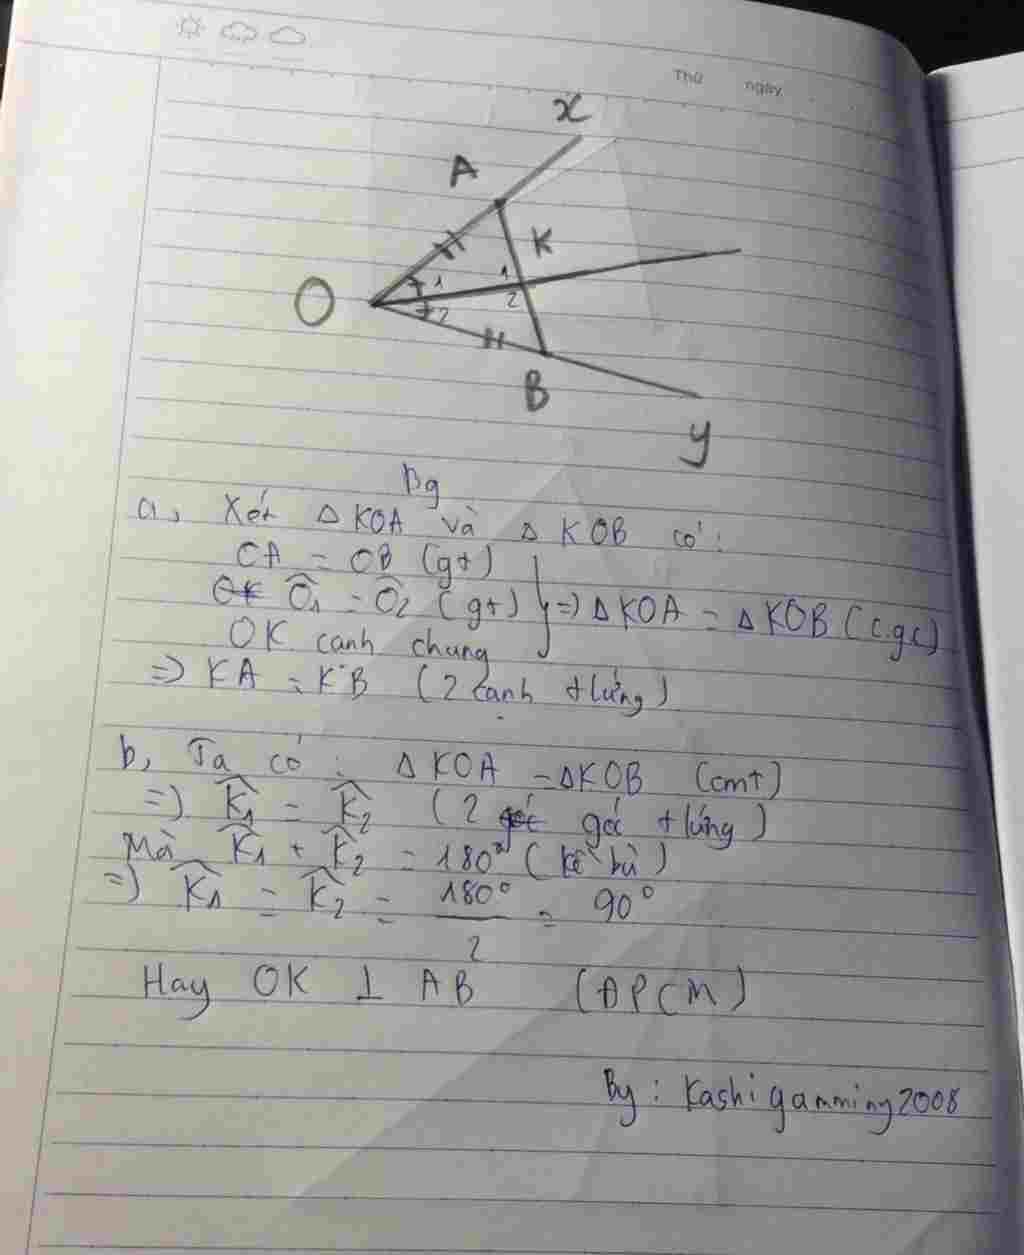 Thứ ngày
x
A
K
1
1
O
2
2
B
y
Bg
a, Xét Δ KOA và Δ KOB có:
OA = OB (gt)
Ô1 = Ô2 (gt) } => Δ KOA = Δ KOB (c.g.c)
OK canh chung
=> KA = KB (2 canh tứng)
b, Ta có : Δ KOA = Δ KOB (cmt)
=> K̂1 = K̂2 (2 góc tứng)
Mà K̂1 + K̂2 = 180° (kề bù)
=> K̂1 = K̂2 = 180°/2 = 90°
Hay OK ⊥ AB (ĐPCM)
By: Kashigamming2008